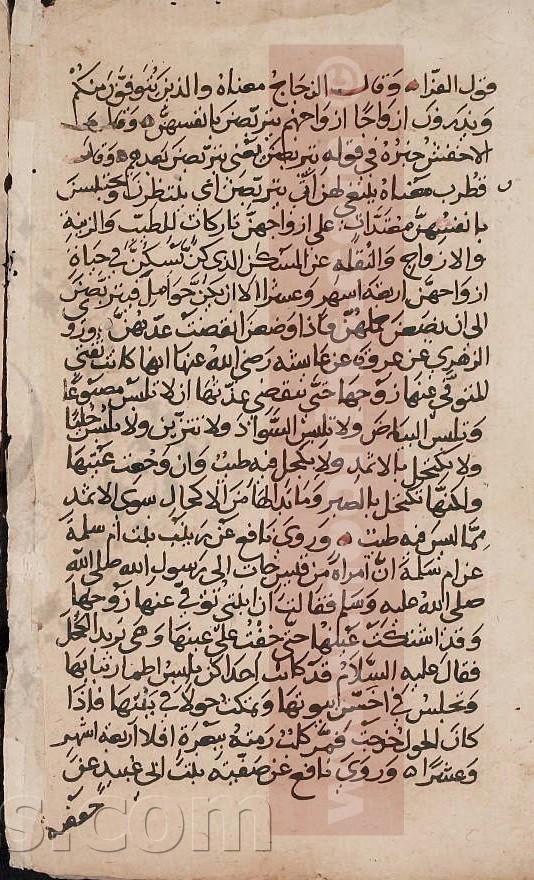 قول الفراء وقال الزجاج معناه والذين يتوفون منكم
ويذرون ازواجا ازواجهم يتربصن بانفسهن وقال
الاخفش خبره في قوله يتربصن يعني يتربصن بعدهم وقال
قطرب معناه ينبغي لهن ان يتربصن اي ينتظرن ويحتبسن
بانفسهن معتدات على ازواجهن تاركات للطيب والزينة
والازواج والنقلة عن المسكن الذي كن يسكن في حياة
ازواجهن اربعة اشهر وعشرا الا ان يكن حوامل فيتربصن
الى ان يضعن حملهن فاذا وضعن انقضت عدتهن وروى
الزهري عن عروة عن عائشة رضي الله عنها انها كانت تفتي
المتوفى عنها زوجها حتى تنقضي عدتها ان لا تلبس مصبوغا
وتلبس البياض ولا تلبس السواد ولا تتزين ولا تلبس حليا
ولا تكتحل بالاثمد ولا بكحل فيه طيب وان وجعت عينها
ولكنها تكتحل بالصبر وما بدا لها من الاكحال سوى الاثمد
مما ليس فيه طيب وروى نافع عن زينب بنت ام سلمة
عن ام سلمة ان امراة من قريش جات الى رسول الله صلى الله
صلى الله عليه وسلم فقالت ان ابنتي توفي عنها زوجها
وقد اشتكت عينها حتى خفت على عينها وهي تريد الكحل
فقال عليه السلام قد كانت احداكن تلبس اطمار ثيابها
وتجلس في اخس بيوتها وتمكث حولا في بيتها فاذا
كان الحول خرجت فمر كلب رمته ببعرة افلا اربعة اشهر
وعشرا وروى نافع عن صفية بنت ابي عبيد عن
حفصة